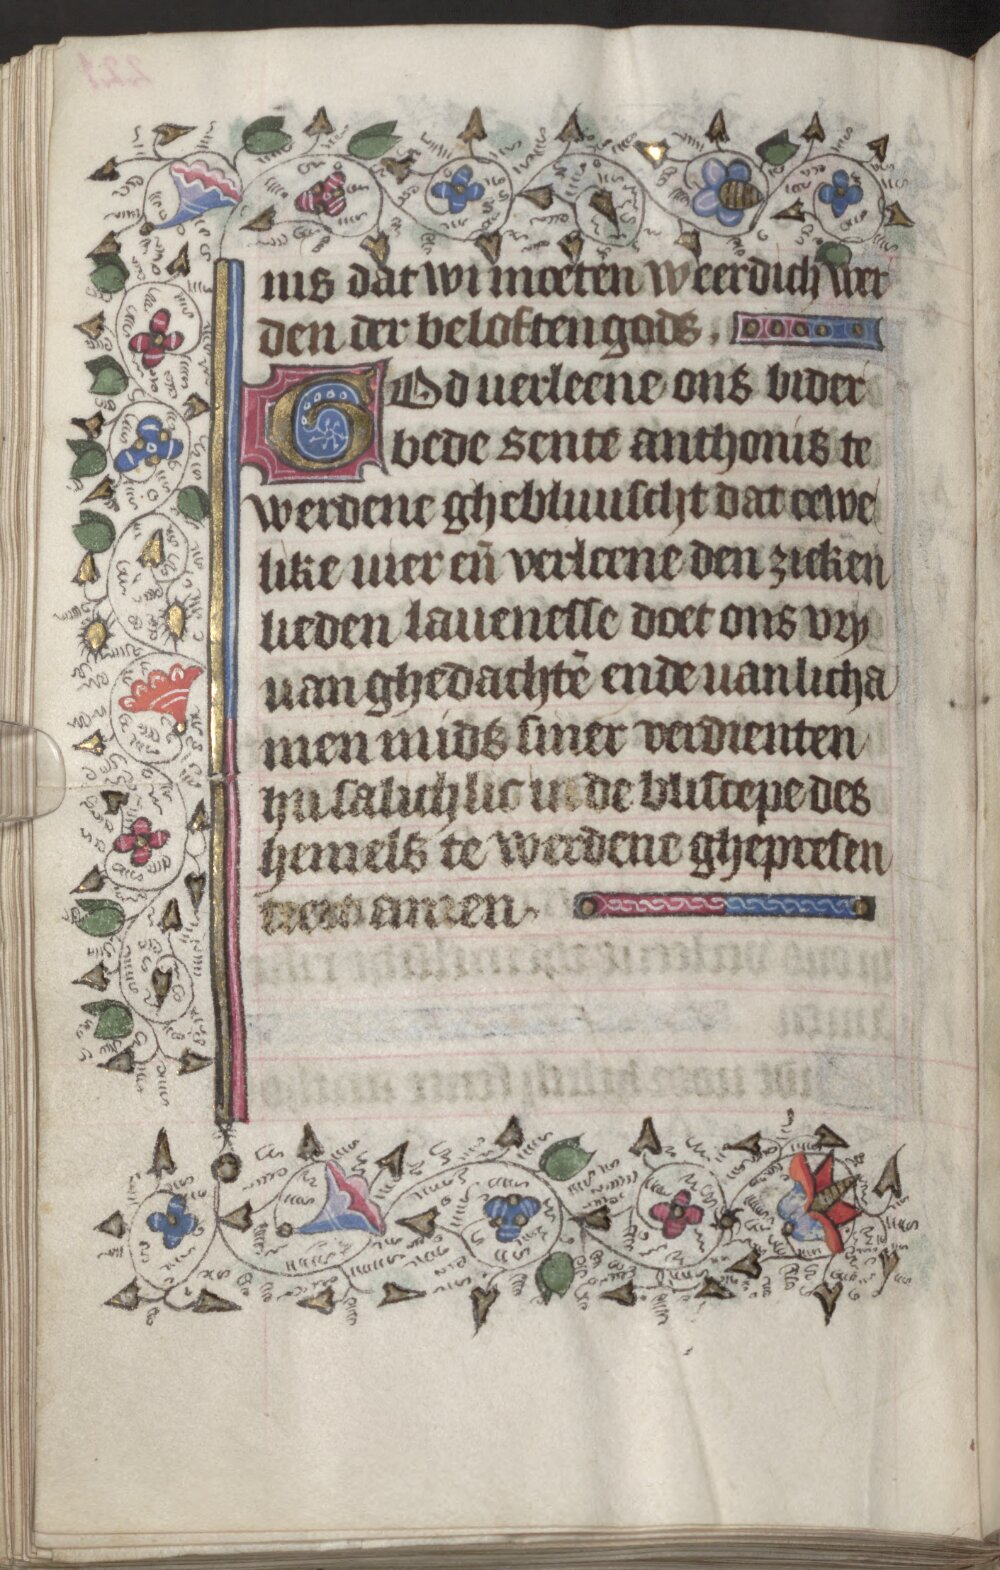 nis dat wi moeten weerdich wer
den der beloften gods.
God uerleene ons bider
bede sente anthonis te
werdene ghebluuscht dat eewe
like uier en̄ verleene den zieken
lieden lauenesse doet ons vry
uan ghedachtē ende uan licha
men mids siner verdienten
hu salichlic in de bliscepe des
hemels te werdene ghepresen
teert amen.